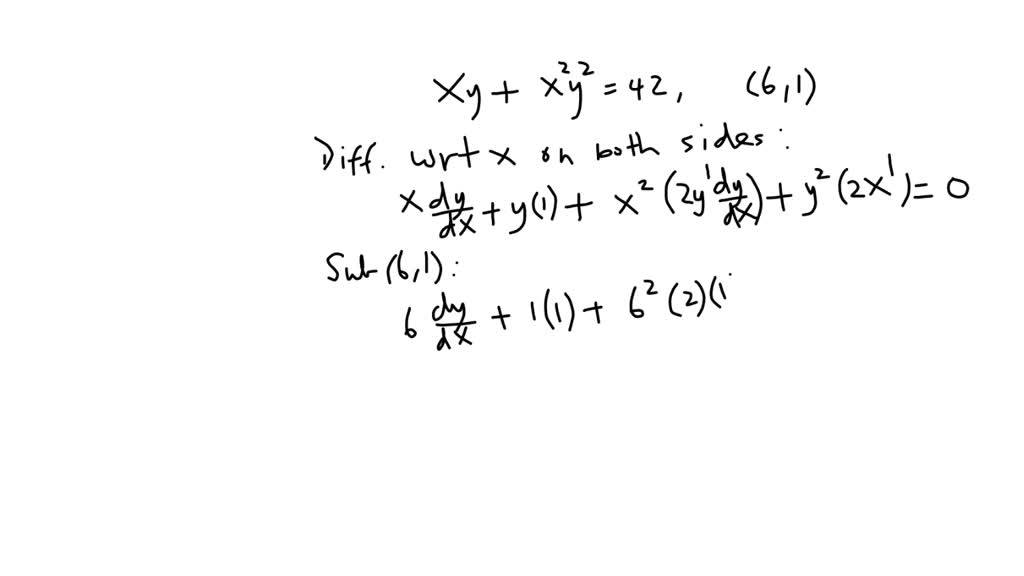 xy + x²y² = 42, (6,1)
Diff. wrt x on both sides:
x dy/dx + y(1) + x²(2y¹ dy/dx) + y²(2x¹) = 0
Sub (6,1):
6 dy/dx + 1(1) + 6²(2)(1